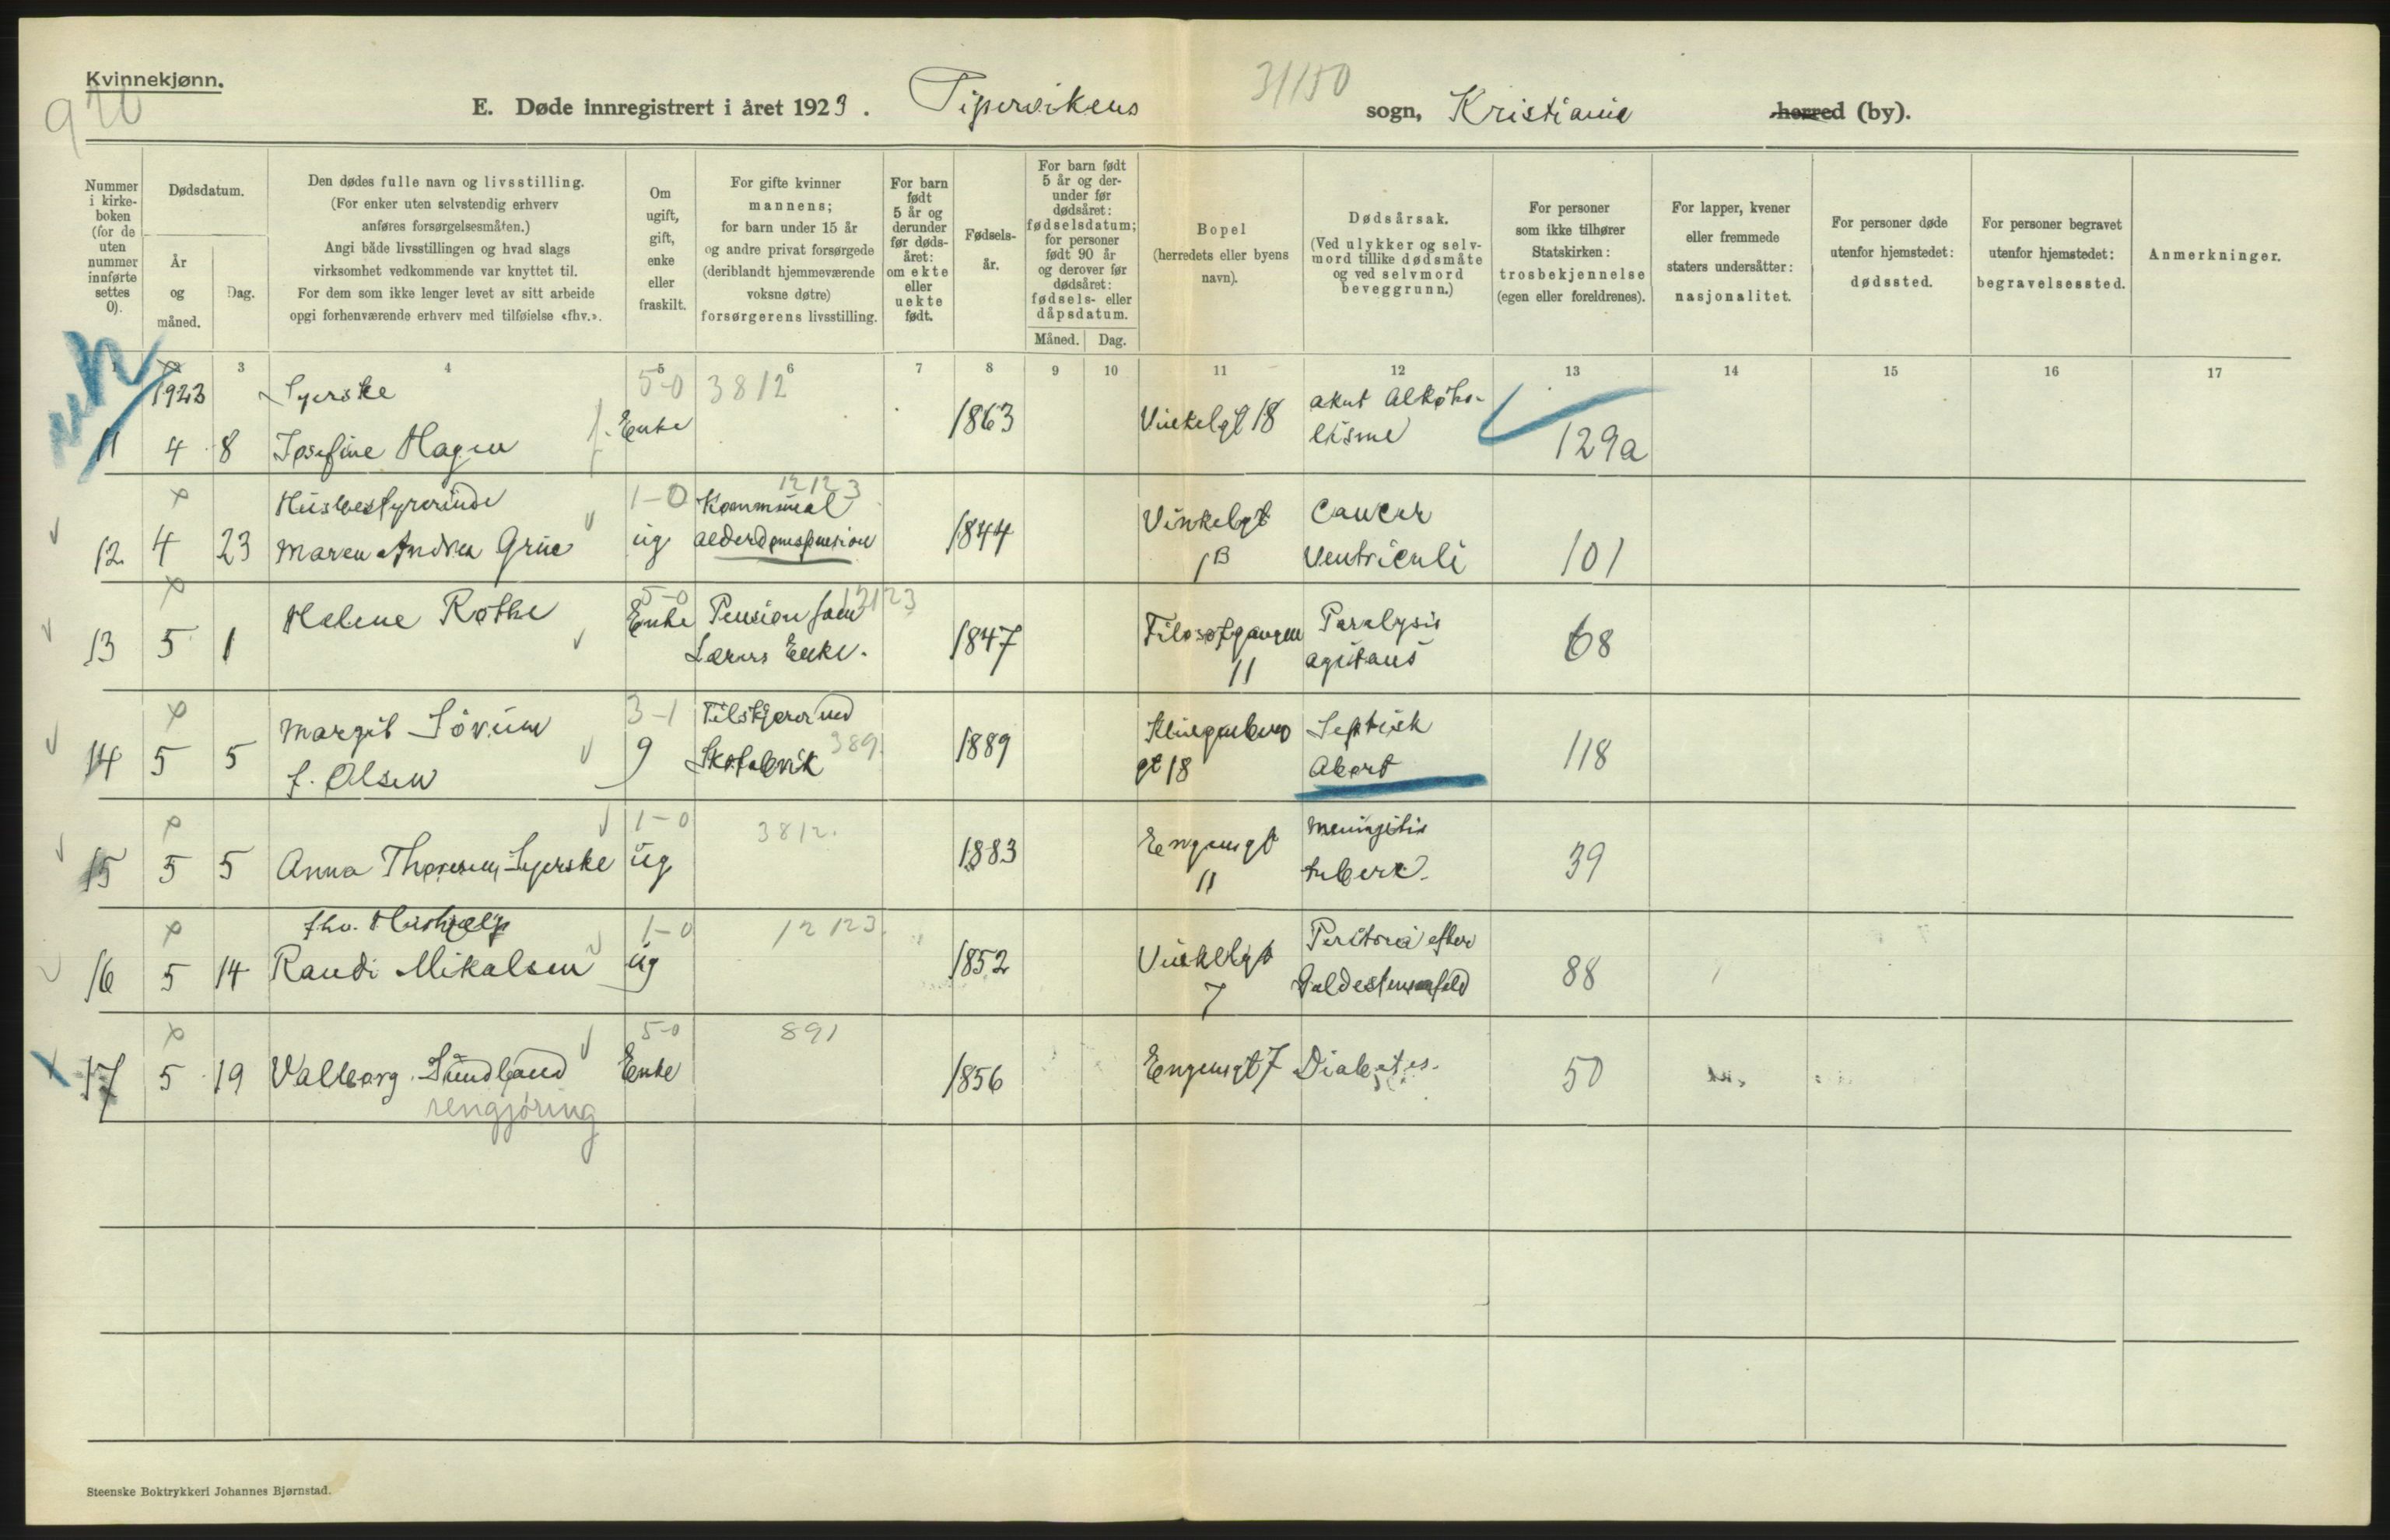 Kvinnekjønn.
920
E. Døde innregistrert i året 1923. Pipervikens 31/150 sogn, Kristiania herred (by).
Nummer i kirkeboken (for de uten nummer innførte settes 0).
Dødsdatum.
År og måned.
Dag.
Den dødes fulle navn og livsstilling.
(For enker uten selvstendig erhverv
anføres forsørgelsesmåten.)
Angi både livsstillingen og hvad slags
virksomhet vedkommende var knyttet til.
For dem som ikke lenger levet av sitt arbeide
opgi forhenværende erhverv med tilføielse «fhv.».
Om ugift, gift, enke eller fraskilt.
For gifte kvinner
mannens;
for barn under 15 år
og andre privat forsørgede
(deriblandt hjemmeværende
voksne døtre)
forsørgerens livsstilling.
For barn født 5 år og derunder før dødsåret: om ekte eller uekte født.
Fødselsår.
For barn født 5 år og derunder før dødsåret: fødselsdatum; for personer født 90 år og derover før dødsåret: fødsels- eller dåpsdatum.
Måned. Dag.
Bopel
(herredets eller byens
navn).
Dødsårsak.
(Ved ulykker og selvmord tillike dødsmåte og ved selvmord beveggrunn.)
For personer
som ikke tilhører
Statskirken:
trosbekjennelse
(egen eller foreldrenes).
For lapper, kvener
eller fremmede
staters undersåtter:
nasjonalitet.
For personer døde
utenfor hjemstedet:
dødssted.
For personer begravet
utenfor hjemstedet:
begravelsessted.
Anmerkninger.
1 2 3 4 5 6 7 8 9 10 11 12 13 14 15 16 17
1923 Syerske 5-0 3812 akut Alkoho-
11 4 8 Josefine Hagen Enke 1863 Vinkelgt 18 lisme 129a
Husbestyrerinde 1-0 Kommunal 12123 Vinkelgt Cancer
12 4 23 Maren Andrea Grue ug alderdomspension 1844 1B Ventriculi 101
Helene Rothe 5-0 Enke Pension som 12123 Filosofgangen Paralysis
13 5 1 Lærers Enke. 1847 11 agitans 68
Margit Sørum 3-1 Tilskjærer ved Klingenberg Septisk
14 5 5 f. Olsen g Skofabrik 389. 1889 gt 18 Abort 118
1-0 3812. Engensgt Meningitis
15 5 5 Anna Thoresen, Syerske ug 1883 11 tuberc. 39
fhv. Hushjelp 1-0 12123. Vinkelgt Peritonit efter
16 5 14 Randi Mikalsen ug 1852 7 Galdestensanfald 88
5-0 891
17 5 19 Valborg Sundland Enke 1856 Engensgt 7 Diabetes. 50
rengjøring
Steenske Boktrykkeri Johannes Bjørnstad.